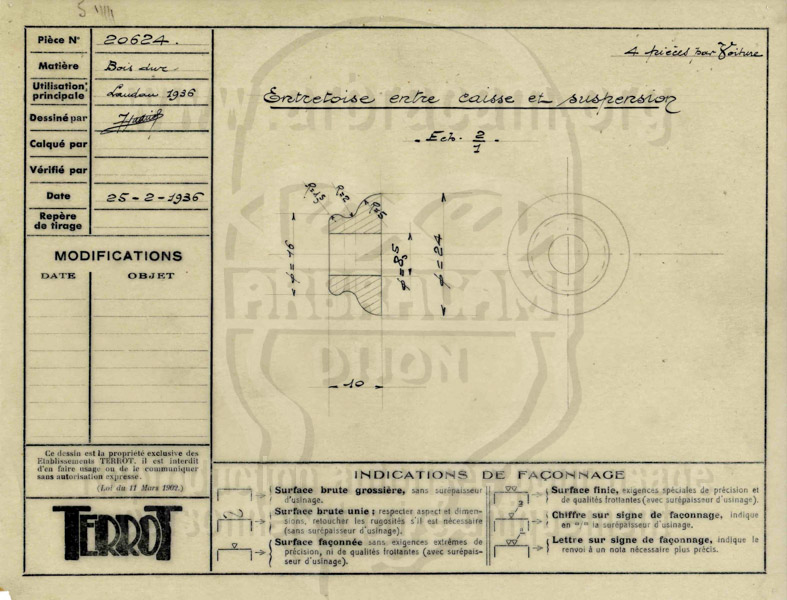 Pièce N° 20624.
Matière Bois dur
Utilisation principale Landau 1936
Dessiné par
Calqué par
Vérifié par
Date 25-2-1936
Repère de tirage
MODIFICATIONS
DATE OBJET
Ce dessin est la propriété exclusive des
Etablissements TERROT, il est interdit
d'en faire usage ou de le communiquer
sans autorisation expresse.
(Loi du 11 Mars 1902.)
TERROT
4 pièces par Voiture
Entretoise entre caisse et suspension
Ech. 2/1
R=2
R=5
ø=16
ø=8,5
ø=24
10
ARBRACAM
DIJON
INDICATIONS DE FAÇONNAGE
Surface brute grossière, sans surépaisseur
d'usinage.
Surface brute unie : respecter aspect et dimen-
sions, retoucher les rugosités s'il est nécessaire
(sans surépaisseur d'usinage).
Surface façonnée sans exigences extrêmes de
précision, ni de qualités frottantes (avec surépais-
seur d'usinage).
Surface finie, exigences spéciales de précision et
de qualités frottantes (avec surépaisseur d'usinage).
Chiffre sur signe de façonnage, indique
en "/m la surépaisseur d'usinage.
Lettre sur signe de façonnage, indique le
renvoi à un nota nécessaire plus précis.